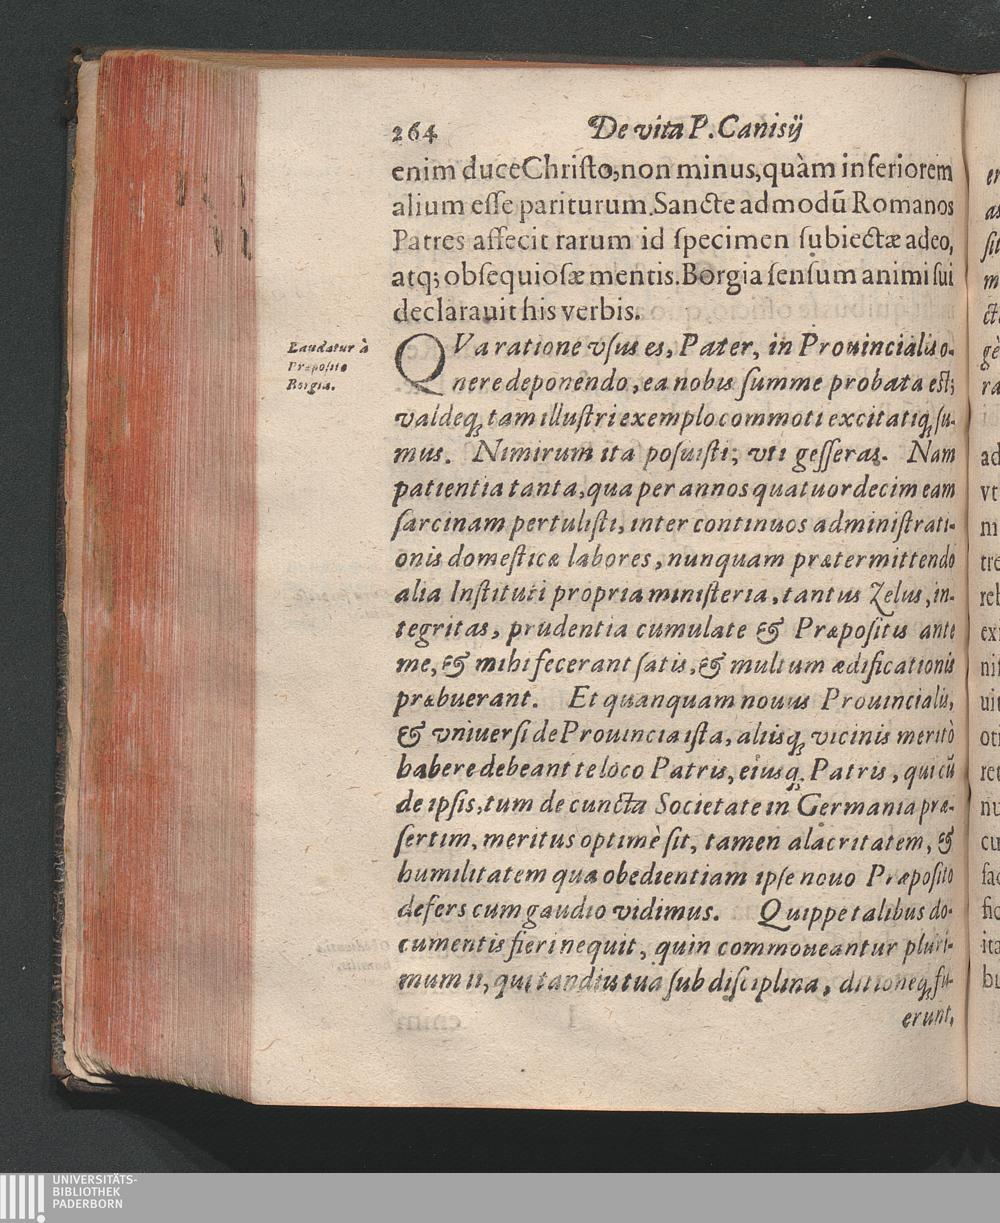 264 De vita P. Canisij
enim duce Chriſto, non minus, quàm inferiorem
alium eſſe pariturum. Sancte admodū Romanos
Patres affecit rarum id ſpecimen ſubiectæ adeo,
atq; obſequioſæ mentis. Borgia ſenſum animi ſui
declarauit his verbis.
Laudatur à
Præpoſito
Borgia.
QVa ratione vſus es, Pater, in Prouincialis o-
nere deponendo, ea nobis ſumme probata eſt;
valdeq; tam illuſtri exemplo commoti excitatiq; ſu-
mus. Nimirum ita poſuiſti, vti geſſeras. Nam
patientia tanta, qua per annos quatuordecim eam
ſarcinam pertuliſti, inter continuos adminiſtrati-
onis domeſticæ labores, nunquam prætermittendo
alia Inſtituti propria miniſteria, tantus Zelus, in-
tegritas, prudentia cumulate & Præpoſitis ante
me, & mihi fecerant ſatis, & multum ædificationis
præbuerant. Et quanquam nouus Prouincialis,
& vniuerſi de Prouincia iſta, aliisq; vicinis meritò
habere debeant te loco Patris, eiusq; Patris, qui cū
de ipſis, tum de cuncta Societate in Germania præ-
ſertim, meritus optimè ſit, tamen alacritatem, &
humilitatem qua obedientiam ipſe nouo Præpoſito
defers cum gaudio vidimus. Quippe talibus do-
cumentis fieri nequit, quin commoueantur pluri-
mum ii, qui tandiu tua ſub diſciplina, ditioneq; fu-
erunt,
UNIVERSITÄTS-
BIBLIOTHEK
PADERBORN